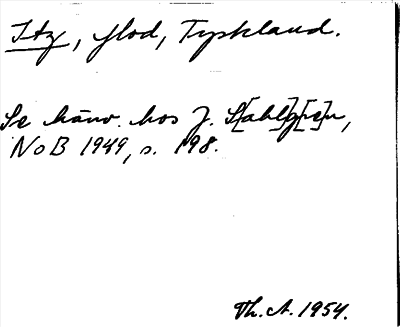 Itz, flod, Tyskland.
Se hänv. hos J. S[ahl]g[re]n,
NoB 1949, s. 198.
Th. A. 1954.